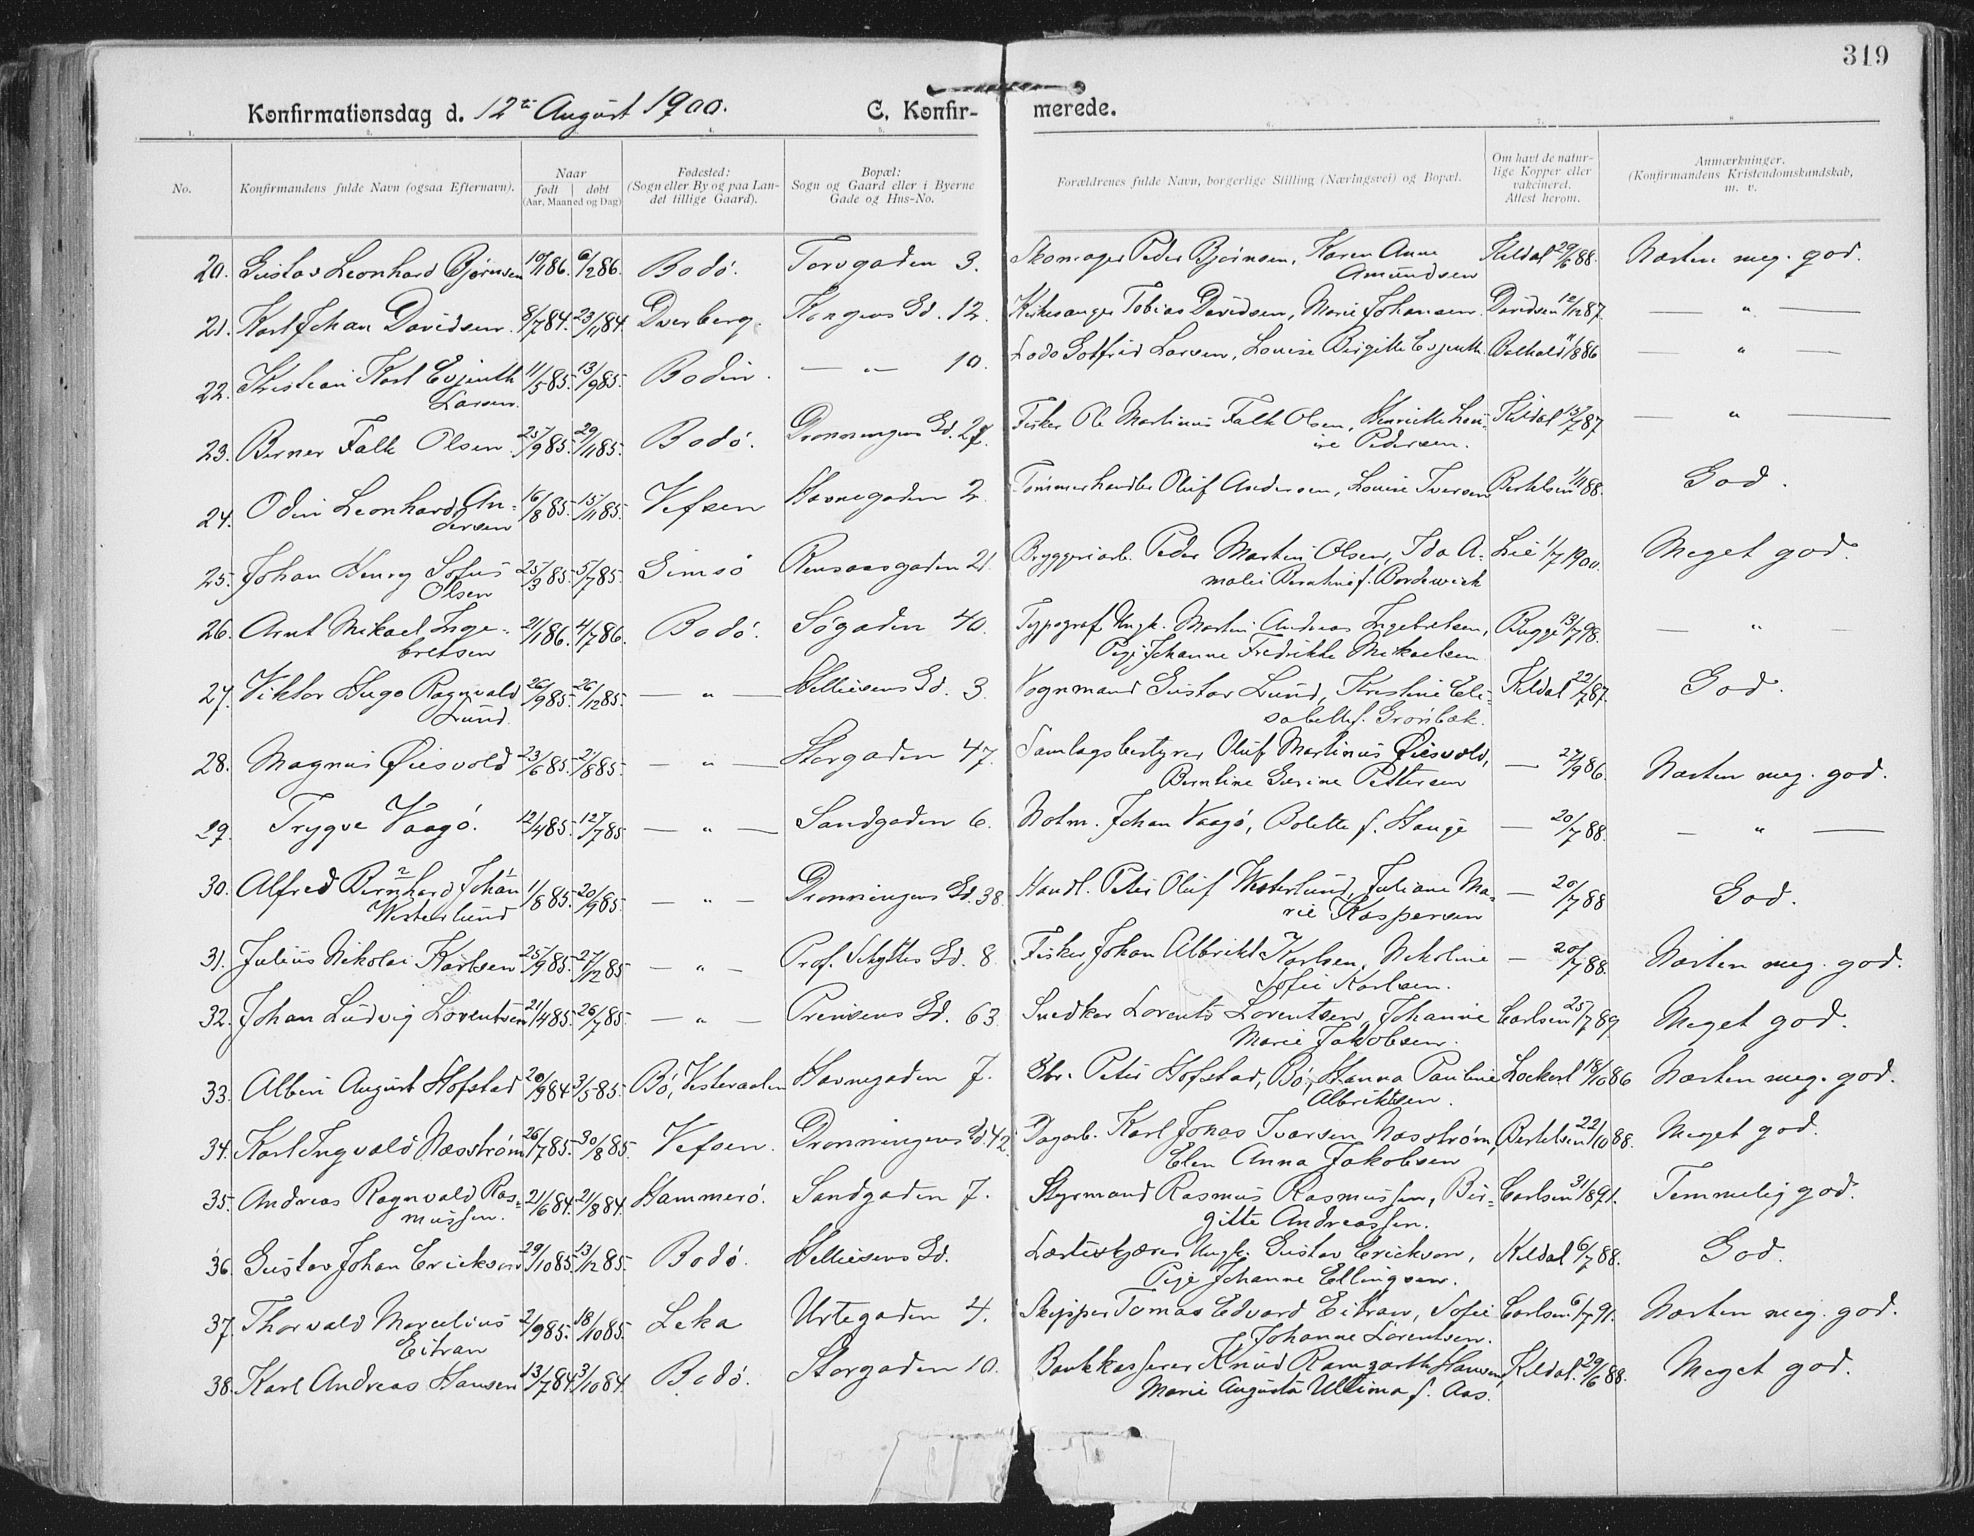 319
Konfirmationsdag d. 12te August 1900. C. Konfir- merede.
1. 2. 3. 4. 5. 6. 7. 8.
No. Konfirmandens fulde Navn (ogsaa Efternavn). Naar født døbt (Aar, Maaned og Dag) Fødested: (Sogn eller By og paa Landet tillige Gaard). Bopæl: Sogn og Gaard eller i Byerne Gade og Hus-No. Forældrenes fulde Navn, borgerlige Stilling (Næringsvei) og Bopæl. Om havt de naturlige Kopper eller vakcineret. Attest herom. Anmærkninger. (Konfirmandens Kristendomskundskab, m. v.
20. Gustav Leonhard Bjørnsen 10/1 86. 6/2 86. Bodø. Torvgaden 3. Skomager Peder Bjørnsen, Karen Anna Kildal 29/6 88. Næsten meg. god.
Amundsen
21. Karl Johan Davidsen 8/7 84. 23/11 84. Dverberg. Kongens Gd. 12. Kirkesanger Tobias Davidsen, Marie Johansen Davidsen 12/12 87. — " —
22. Kristian Karl Evjenth 11/5 85. 13/9 85. Bodin. — " — 10. Lods Gotfrid Larsen, Louise Birgitte Evjenth 11/8 86 — " —
Larsen.
23. Berner Falk Olsen 25/9 85. 29/11 85. Bodø. Dronningens Gd. 27. Fisker Ole Martinus Falk Olsen, Henrikke Lou- Kildal 13/7 87 — " —
ise Pedersen.
24. Odin Leonhard An- 16/8 85. 15/11 85. Vefsen Havnegaden 2. Tømmerhandler Oluf Andersen, Louise Iversen Bertelsen 1/11 88. God.
dersen
25. Johan Henry Sofus 25/3 85. 5/7 85. Gimsø Rensaasgaden 21. Bryggeriarb. Peder Martin Olsen, Ida A- Lie 1/7 1900. Meget god.
Olsen malie Berntine f. Bordewick
26. Arnt Mikael Inge- 21/1 86. 4/7 86. Bodø. Søgaden 40. Typograf Ungk. Martin Andreas Ingebretsen, Bugge 13/7 98. — " —
bretsen Pige Johanne Fredrikke Mikaelsen
27. Viktor Hugo Ragnvald 26/9 85. 26/12 85. — " — Helliesens Gd. 3. Vognmand Gustav Lund, Kristine Eli- Kildal 22/7 87. God.
Lund. sabeth f. Grønbæk.
28. Magnus Øiesvold 23/6 85. 2/8 85. — " — Storgaden 47. Samlagsbestyrer Oluf Martinus Øiesvold, — 27/9 86. Næsten meg. god.
Berntine Gurine Pettersen
29. Trygve Vaagø. 12/4 85. 12/7 85 — " — Sandgaden 6. Notm. Johan Vaagø, Bolette f. Hauge — 20/7 88. — " —
30. Alfred Bernhard Johan 1/8 85. 20/9 85. — " — Dronningens Gd. 38. Handl. Peter Oluf Westerlund, Juliane Ma- — 20/7 88 God.
Westerlund rie Kaspersen
31. Julius Nikolai Karlsen 25/9 85. 27/12 85 — " — Prof. Schyttes Gd. 8. Fisker Johan Albrikt Karlsen, Nikoline — 20/7 88. Næsten meg. god.
Sofie Karlsen.
32. Johan Ludvig Lorentsen 21/4 85. 26/7 85. — " — Prinsens Gd. 63. Snedker Lorents Lorentsen, Johanne Carlsen 25/7 89 Meget god.
Marie Jakobsen.
33. Albin August Hofstad 20/9 84 3/5 85. Bø, Vesteraalen Havnegaden 7. Gbr. Peter Hofstad, Bø, Hanna Pauline Lockert 18/10 86 Næsten meg. god.
Albriktsen.
34. Karl Ingvald Næsstrøm 26/7 85. 30/8 85. Vefsen. Dronningens Gd. 42. Dagarb. Karl Jonas Ivarsen Næsstrøm, Bertelsen 22/10 88. Meget god.
Elen Anna Jakobsen
35. Andreas Ragnvald Ras- 21/6 84. 21/8 84. Hammerø. Sandgaden 7. Styrmand Rasmus Rasmussen, Bir- Carlsen 31/8 91. Temmelig god.
mussen. gitte Andreassen.
36. Gustav Johan Erickson 29/10 85. 13/12 85. Bodø. Helliesens Gd. Ungk. Gustav Erickson, Kildal 6/7 88. God.
Pige Johanne Ellingsen.
37. Thorvald Marcelius 2/9 85. 18/10 85. Leka Urtegaden 4. Skipper Tomas Edvard Eitran, Sofie Carlsen 6/7 91. Næsten meg. god.
Eitran Johanne Lorentsen.
38. Karl Andreas Hansen 13/7 84. 3/10 84. Bodø. Storgaden 10. Bankkasserer Knud Ramgarth Hansen, Kildal 29/6 88. Meget god.
Marie Augusta Ultima f. Aas.